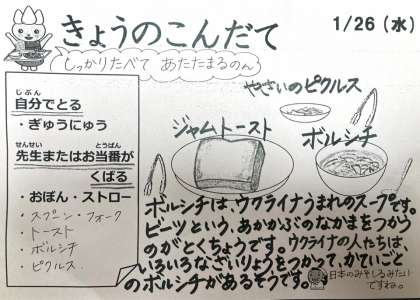 きょうのこんだて
1/26（水）
しっかりたべて あたたまるのん
じぶん
自分でとる
・ぎゅうにゅう
せんせい とうばん
先生またはお当番が
くばる
・おぼん・ストロー
・スプーン・フォーク
・トースト
・ボルシチ
・ピクルス
やさいのピクルス
ジャムトースト
ボルシチ
ボルシチは、ウクライナうまれのスープです。
ビーツという、あかかぶのなかまをつかう
のがとくちょうです。ウクライナの人たちは、
いろいろなざいりょうをつかって、かていごと
のボルシチがあるそうです。
日本のみそしるみたい
ですね。